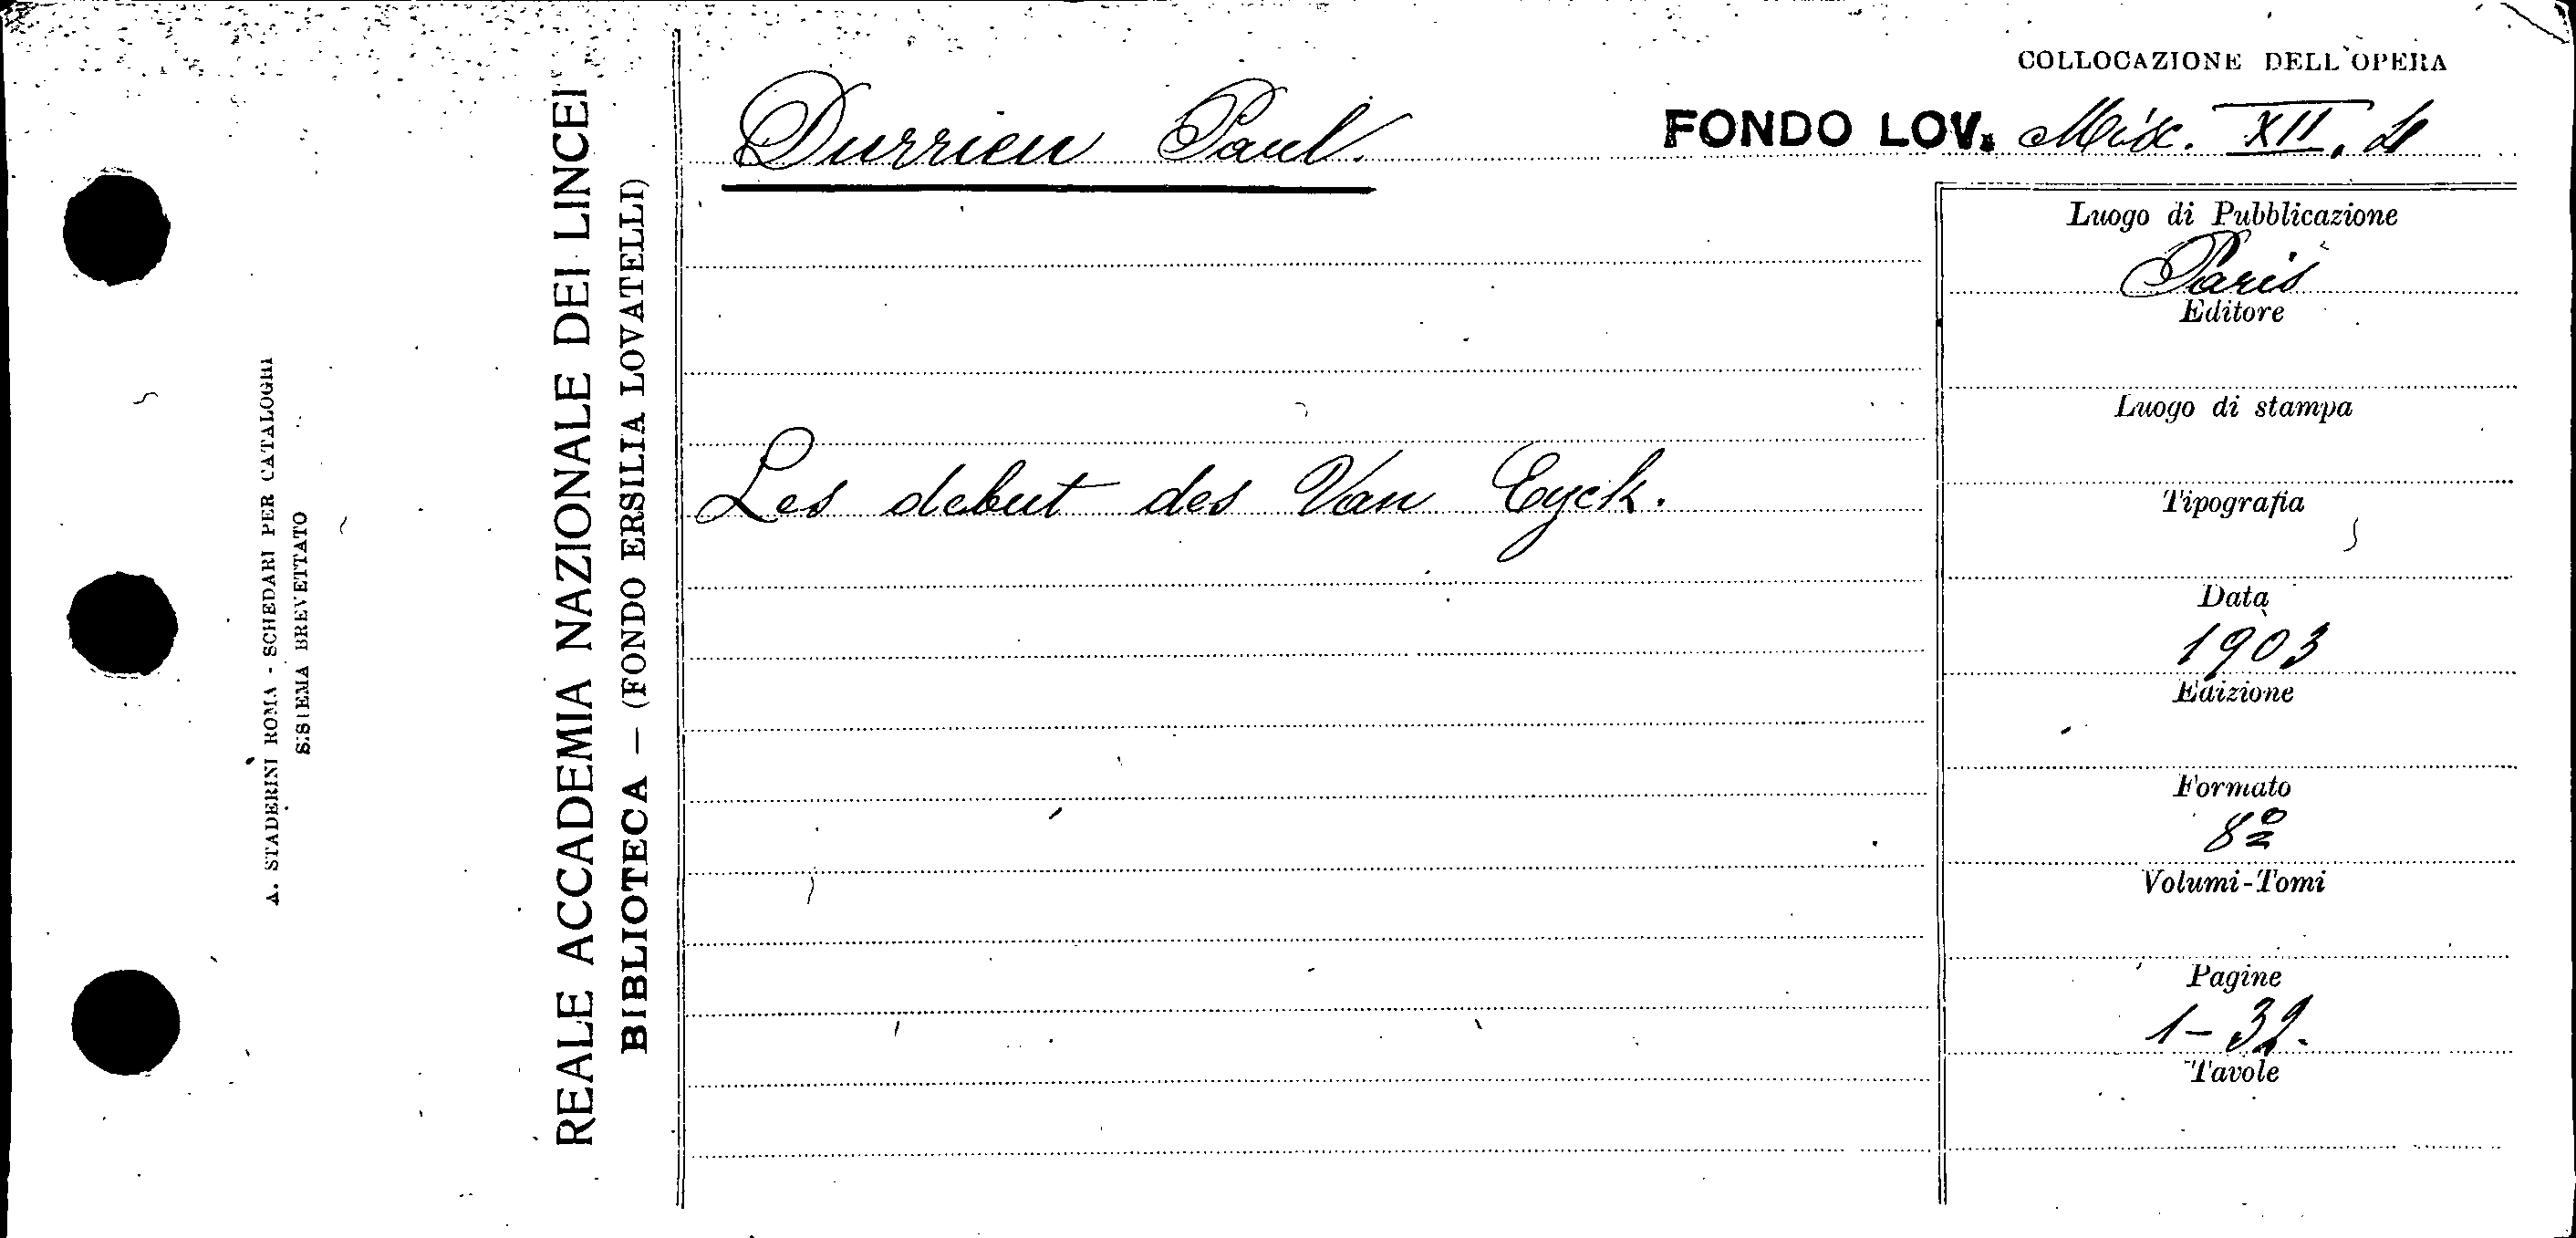 COLLOCAZIONE DELL'OPERA
Durrieu Paul.
FONDO LOV. Misc. XII.
Luogo di Pubblicazione
Paris
Editore
Luogo di stampa
Les debut des Van Eyck.
Tipografia
Data
1903
Edizione
Formato
8º
Volumi-Tomi
Pagine
1-32.
Tavole
REALE ACCADEMIA NAZIONALE DEI LINCEI
BIBLIOTECA — (FONDO ERSILIA LOVATELLI)
A. STADERINI ROMA - SCHEDARI PER CATALOGHI
SISTEMA BREVETTATO